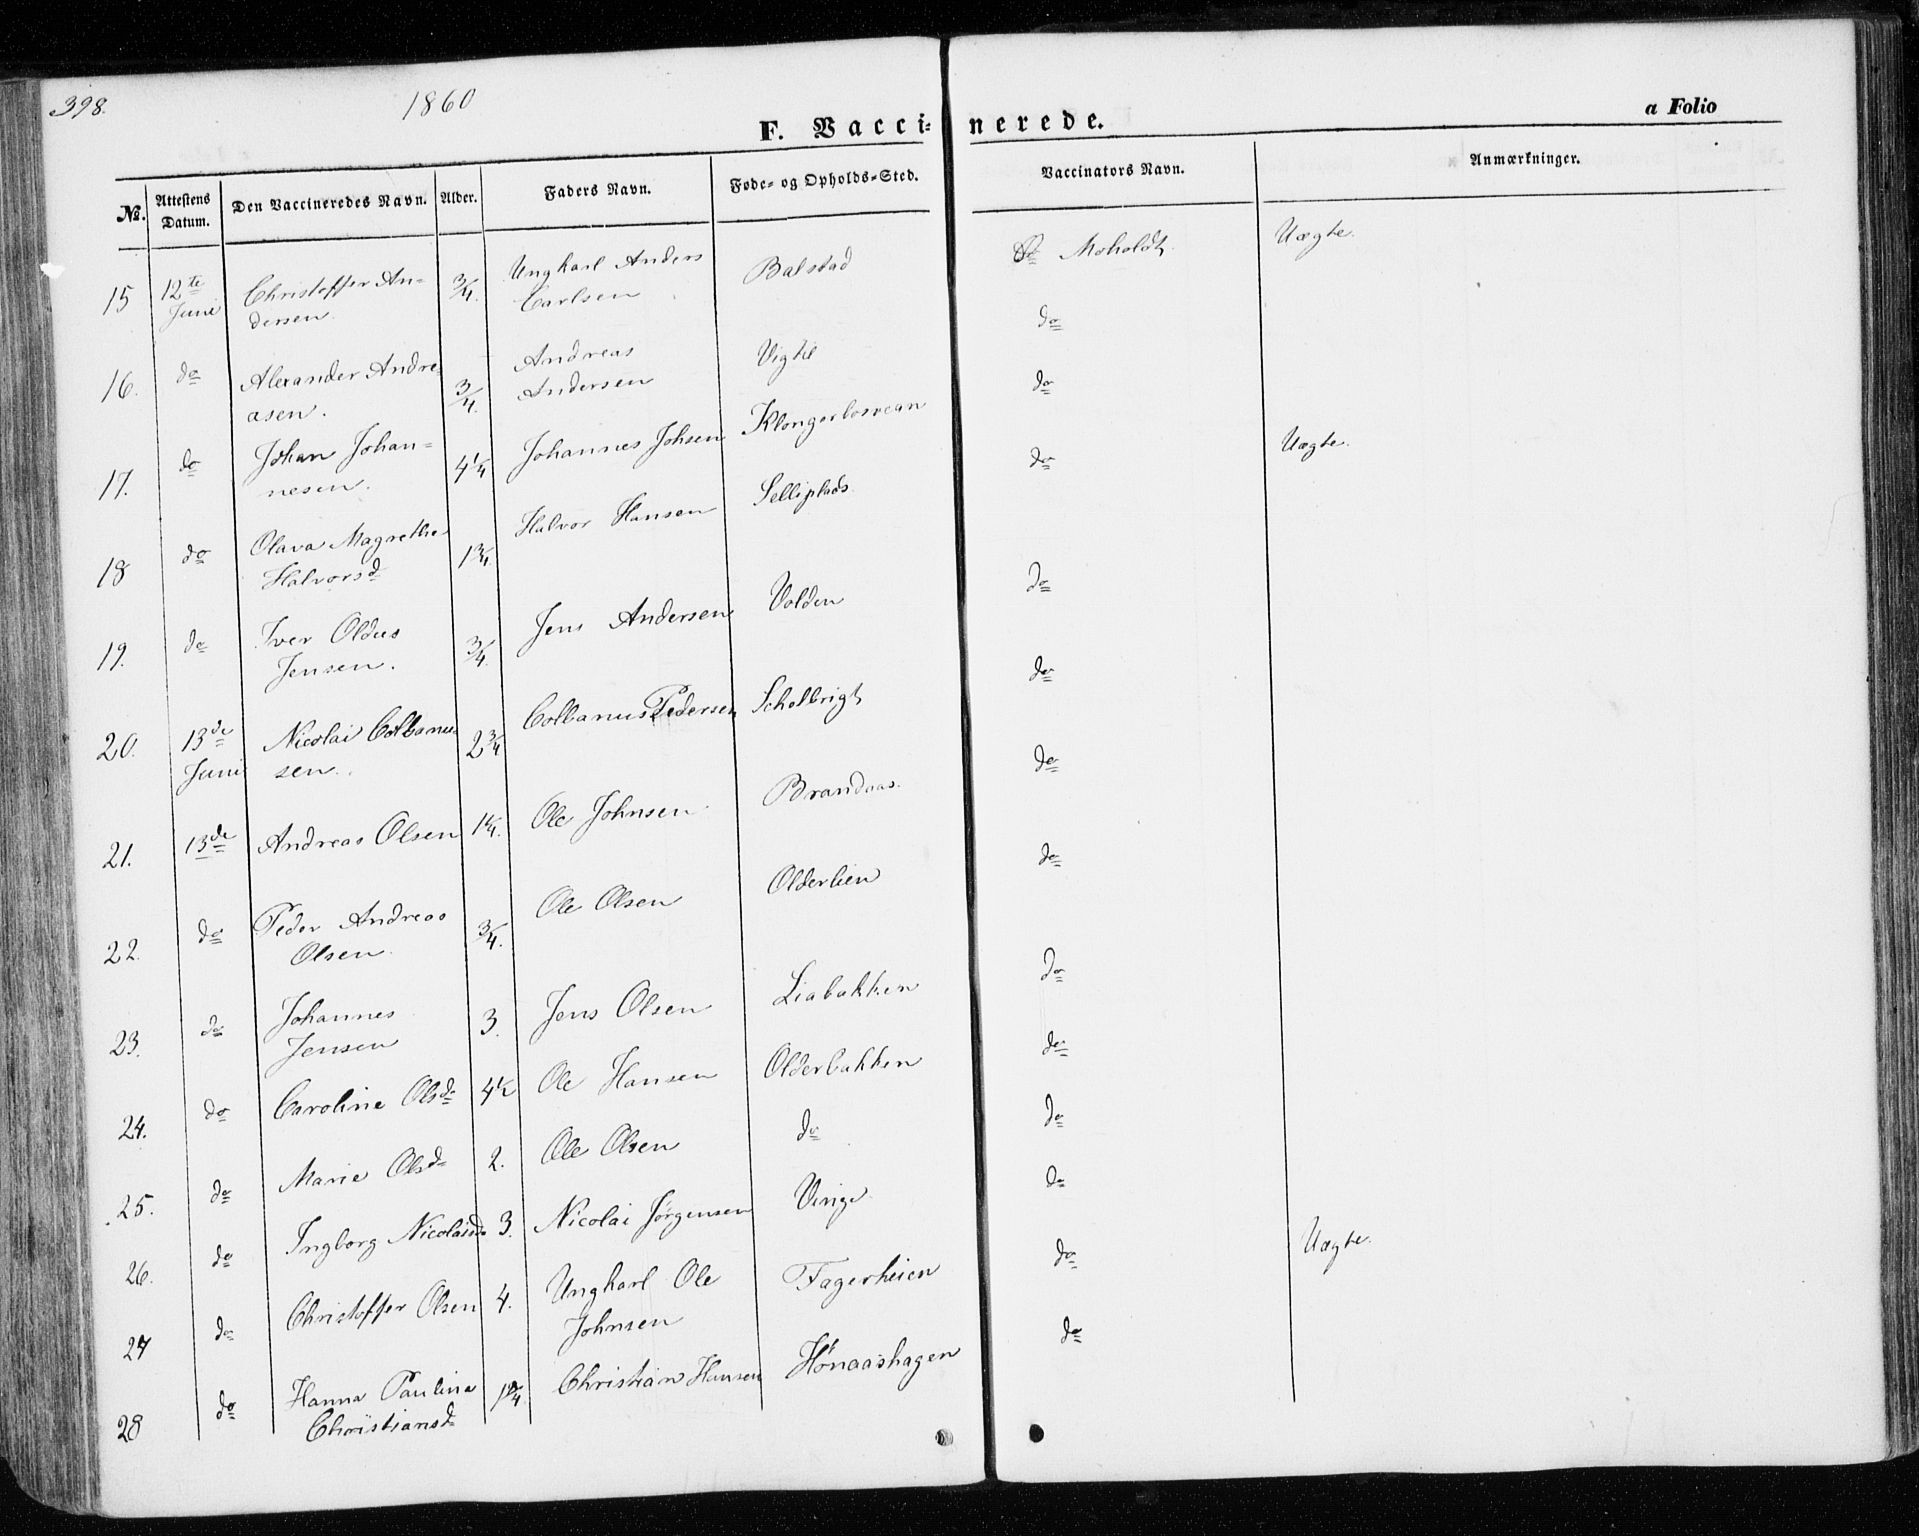 398.
1860
F. Vacci-nerede.
a Folio
No. Attestens Datum. Den Vaccineredes Navn. Alder. Faders Navn. Føde- og Opholds-Sted. Vaccinators Navn. Anmærkninger.
15 12te Juni Christoffer An- 3/4. Ungkarl Anders Balstad Moholdt Uægte.
dersen. Carlsen
16. do Alexander Andre- 3/4. Andreas Vigtil do
asen. Andersen
17. do Johan Johan- 4 1/4 Johannes Johsen do Uægte.
nesen.
18 do Olava Magrethe 1 3/4. Halvor Hansen Selliplads do
Halvorsd
19. do Iver Oldus 3/4. Jens Andersen Volden do
Jensen.
20. 13de Juni Nicolai Colbanu- 2 3/4 Colbanus Pedersen Scholbrigt do
sen.
21. 13de Andreas Olsen 1 1/4. Ole Johnsen Brandaas. do
22. do Peder Andreas 3/4. Ole Olsen Olderlien do
Olsen.
23. do Johannes 3. Jens Olsen Liabakken do
Jensen
24. do Caroline Olsd 4 1/2 Ole Hansen Olderbakken do
25. do Marie Olsd 2. Ole Olsen do do
26. do Ingborg Nicolaisd 3. Nicolai Jørgensen Vinge do
27 do Christoffer Olsen 4. Ungkarl Ole Fagerheien do Uægte.
Johnsen
28 do Hanna Paulina Christian Hansen Hønaashagen do
Christiansd